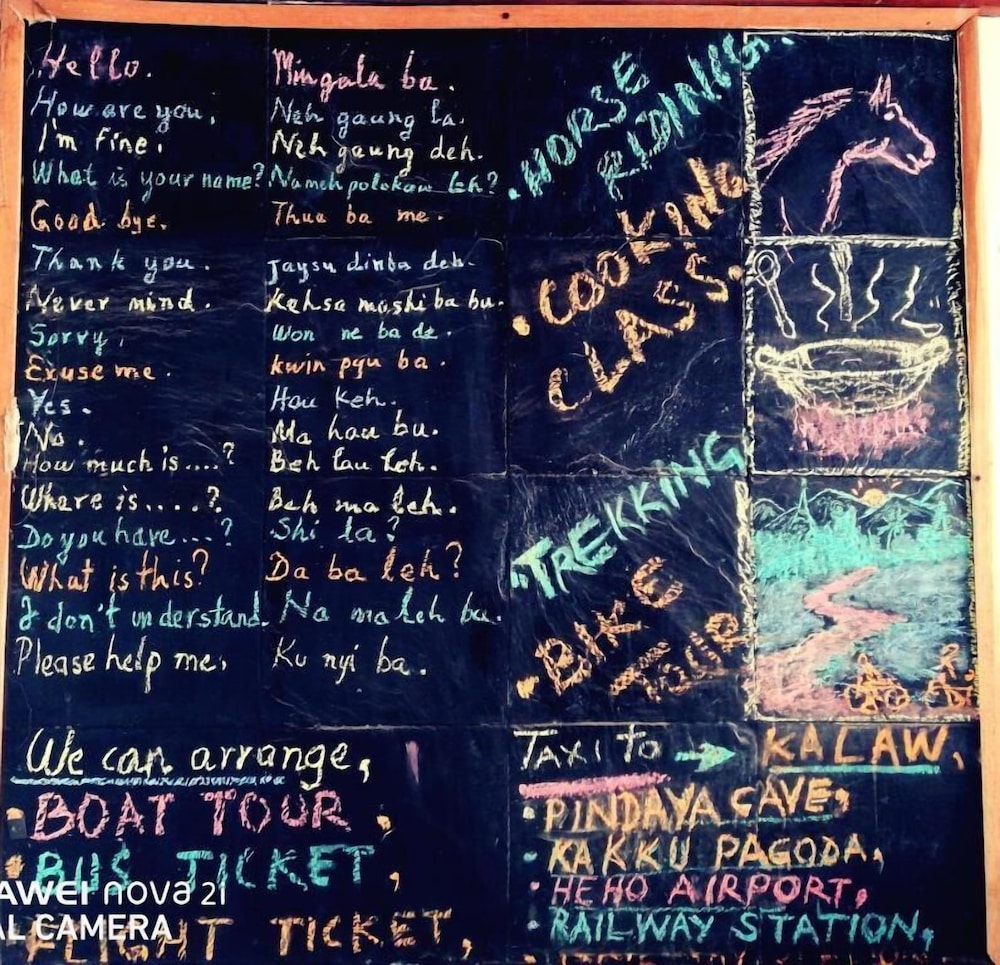 Hello. Mingala ba.
How are you. Neh gaung la.
I'm fine. Neh gaung deh.
What is your name? Nameh polokaw leh?
Good bye. Thua ba me.
Thank you. Jaysu dinba deh.
Never mind. Kehsa mashi ba bu.
Sorry. Won ne ba de.
Exuse me. kwin pyu ba.
Yes. Hou keh.
No. Ma hau bu.
How much is....? Beh lau leh.
Where is.....? Beh ma leh.
Do you have....? Shi la?
What is this? Da ba leh?
I don't understand. Na ma leh bu.
Please help me. Ku nyi ba.
• HORSE
RIDING.
• COOKING
CLASS.
• TREKKING
• BIKE
TOUR
We can arrange,
• BOAT TOUR,
• BUS TICKET,
FLIGHT TICKET,
TAXI TO → KALAW,
• PINDAYA CAVE,
• KAKKU PAGODA,
• HEHO AIRPORT,
• RAILWAY STATION,
AWEI nova 2i
AL CAMERA